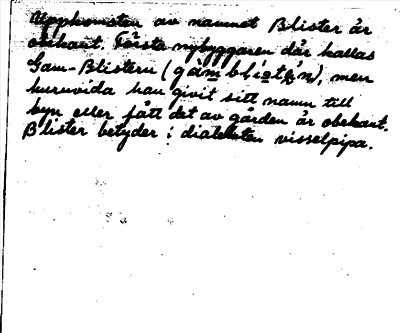 Uppkomsten av namnet Blister är
obekant. Första nybyggaren där kallas
Gam-Blistern ( ), men
huruvida han givit sitt namn till
byn eller fått det av gården är obekant.
Blister betyder i dialekten visselpipa.